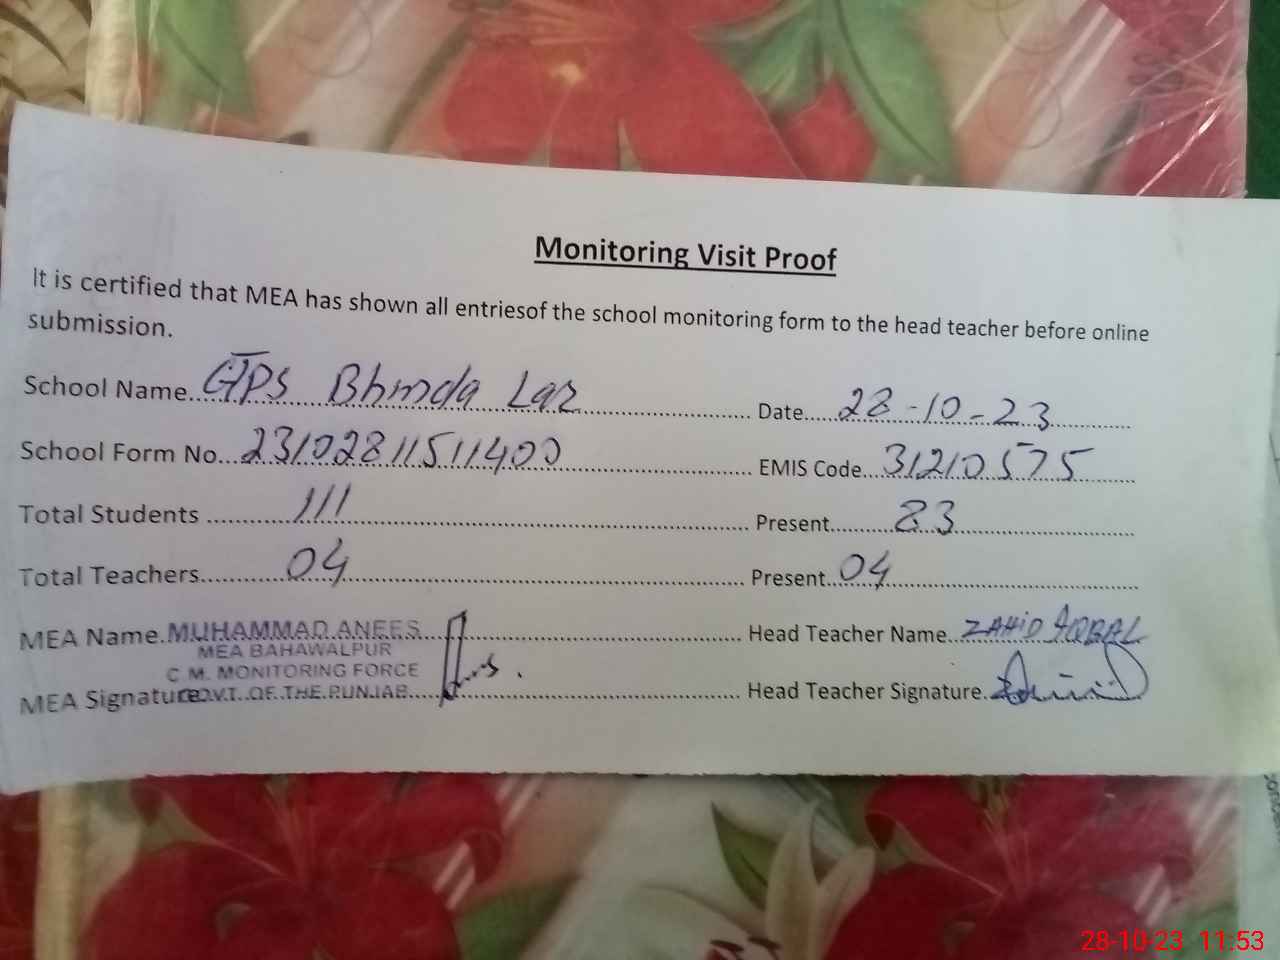 Monitoring Visit Proof
It is certified that MEA has shown all entriesof the school monitoring form to the head teacher before online
submission.
School Name GPS Bhinda Lar Date 28-10-23
School Form No. 23102811511400 EMIS Code 31210575
Total Students 111 Present 83
Total Teachers 04 Present 04
MEA Name. MUHAMMAD ANEES Head Teacher Name ZAHID IQBAL
MEA BAHAWALPUR
C.M. MONITORING FORCE
MEA Signature GOVT. OF THE PUNJAB Head Teacher Signature.
28-10-23 11:53